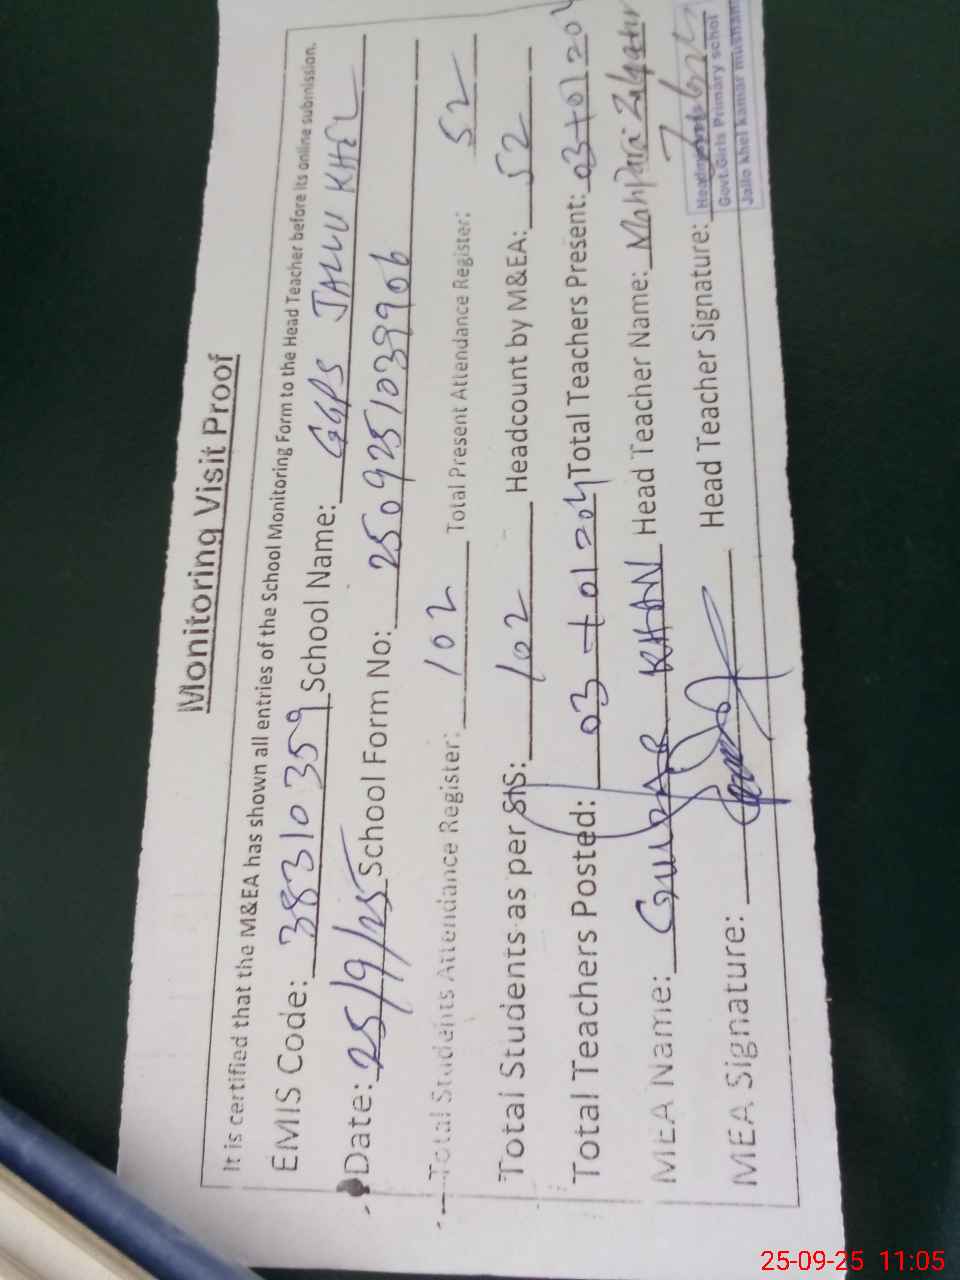 Monitoring Visit Proof
It is certified that the M&EA has shown all entries of the School Monitoring Form to the Head Teacher before its online submission.
EMIS Code: 38310359 School Name: GGPS JALLU KHEL
Date: 25/9/25 School Form No: 2509251039906
Total Students Attendance Register: 102 Total Present Attendance Register: 52
Total Students as per SIS: 102 Headcount by M&EA: 52
Total Teachers Posted: 03+01=04 Total Teachers Present: 03+01=04
MEA Name: GULZAR KHAN Head Teacher Name: Mahpari Zulqarn
MEA Signature: Head Teacher Signature:
Govt.Girls Primary school
Jallo khel kamar mushani
25-09-25 11:05